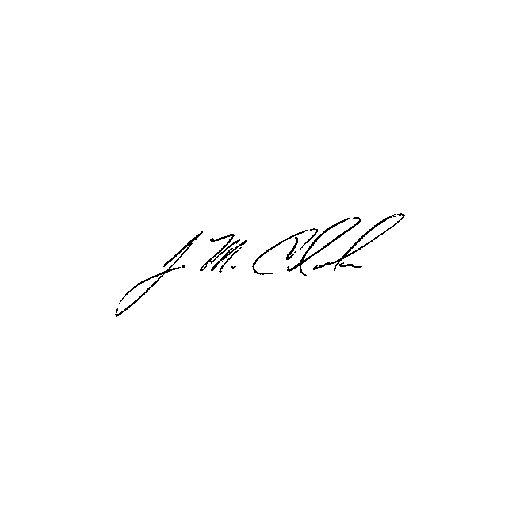 J. M. Clark